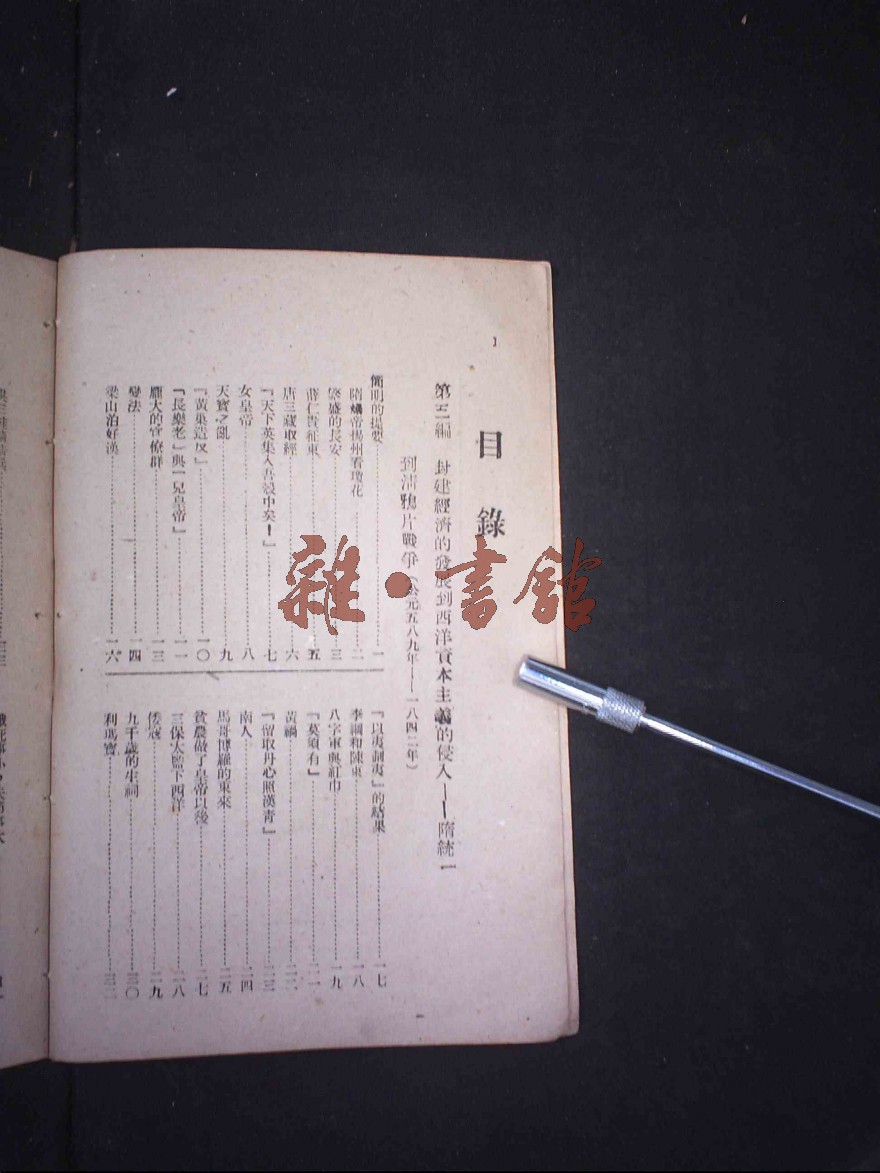 1
目錄
第三編 封建經濟的發展到西洋資本主義的侵入——隋統一
到清鴉片戰爭（公元五八九年——一八四二年）
簡明的提要……一
隋煬帝揚州看瓊花……二
繁盛的長安……三
薛仁貴征東……五
唐三藏取經……六
『天下英雄入吾彀中矣！』……七
女皇帝……八
天寶之亂……九
『黃巢造反』……一〇
『長樂老』與『兒皇帝』……一一
龐大的官僚群……一三
變法……一四
梁山泊好漢……一六
『以夷制夷』的結果……一七
李綱和陳東……一八
八字軍與紅巾……一九
『莫須有』……二一
黃禍……二二
『留取丹心照汗青』……二三
南人……二四
馬哥博羅的東來……二五
貧農做了皇帝以後……二七
三保太監下西洋……二八
倭寇……二九
九千歲的生祠……三〇
利瑪竇……三二
雜·書館